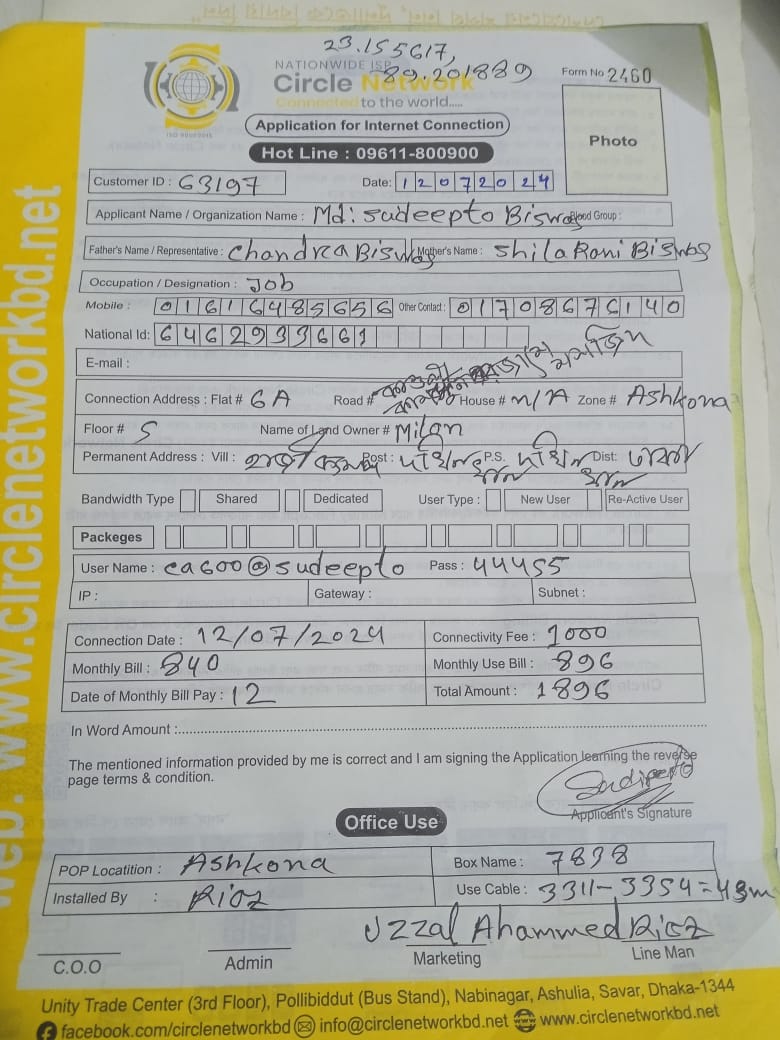 23.155617,
89.201889
NATIONWIDE ISP
Circle Network
Connected to the world.....
ISO 9001:2015
Form No 2460
Application for Internet Connection
Photo
Hot Line : 09611-800900
Customer ID : 63197 Date: 12072024
Applicant Name / Organization Name : Md: Sudeepto Biswas Blood Group :
Father's Name / Representative : Chandra Biswas Mother's Name : Shila Rani Biswas
Occupation / Designation : Job
Mobile : 01616485656 Other Contact : 01708676140
National Id: 6462933661
E-mail :
Connection Address : Flat # 6A Road # House # N/A Zone # Ashkona
Floor # 5 Name of Land Owner # Milan
Permanent Address : Vill : Post : P.S. Dist:
Bandwidth Type Shared Dedicated User Type : New User Re-Active User
Packeges
User Name : ca600@sudeepto Pass : 44455
IP : Gateway : Subnet :
Connection Date : 12/07/2024 Connectivity Fee : 1000
Monthly Bill : 840 Monthly Use Bill : 896
Date of Monthly Bill Pay : 12 Total Amount : 1896
In Word Amount :
The mentioned information provided by me is correct and I am signing the Application learning the reverse
page terms & condition.
Sudipto
Applicent's Signature
Office Use
POP Locatition : Ashkona Box Name : 7838
Installed By : Riaz Use Cable : 3311-3354=43m
Uzzal Ahammed Riaz
C.O.O Admin Marketing Line Man
Unity Trade Center (3rd Floor), Pollibiddut (Bus Stand), Nabinagar, Ashulia, Savar, Dhaka-1344
facebook.com/circlenetworkbd info@circlenetworkbd.net www.circlenetworkbd.net
web: www.circlenetworkbd.net